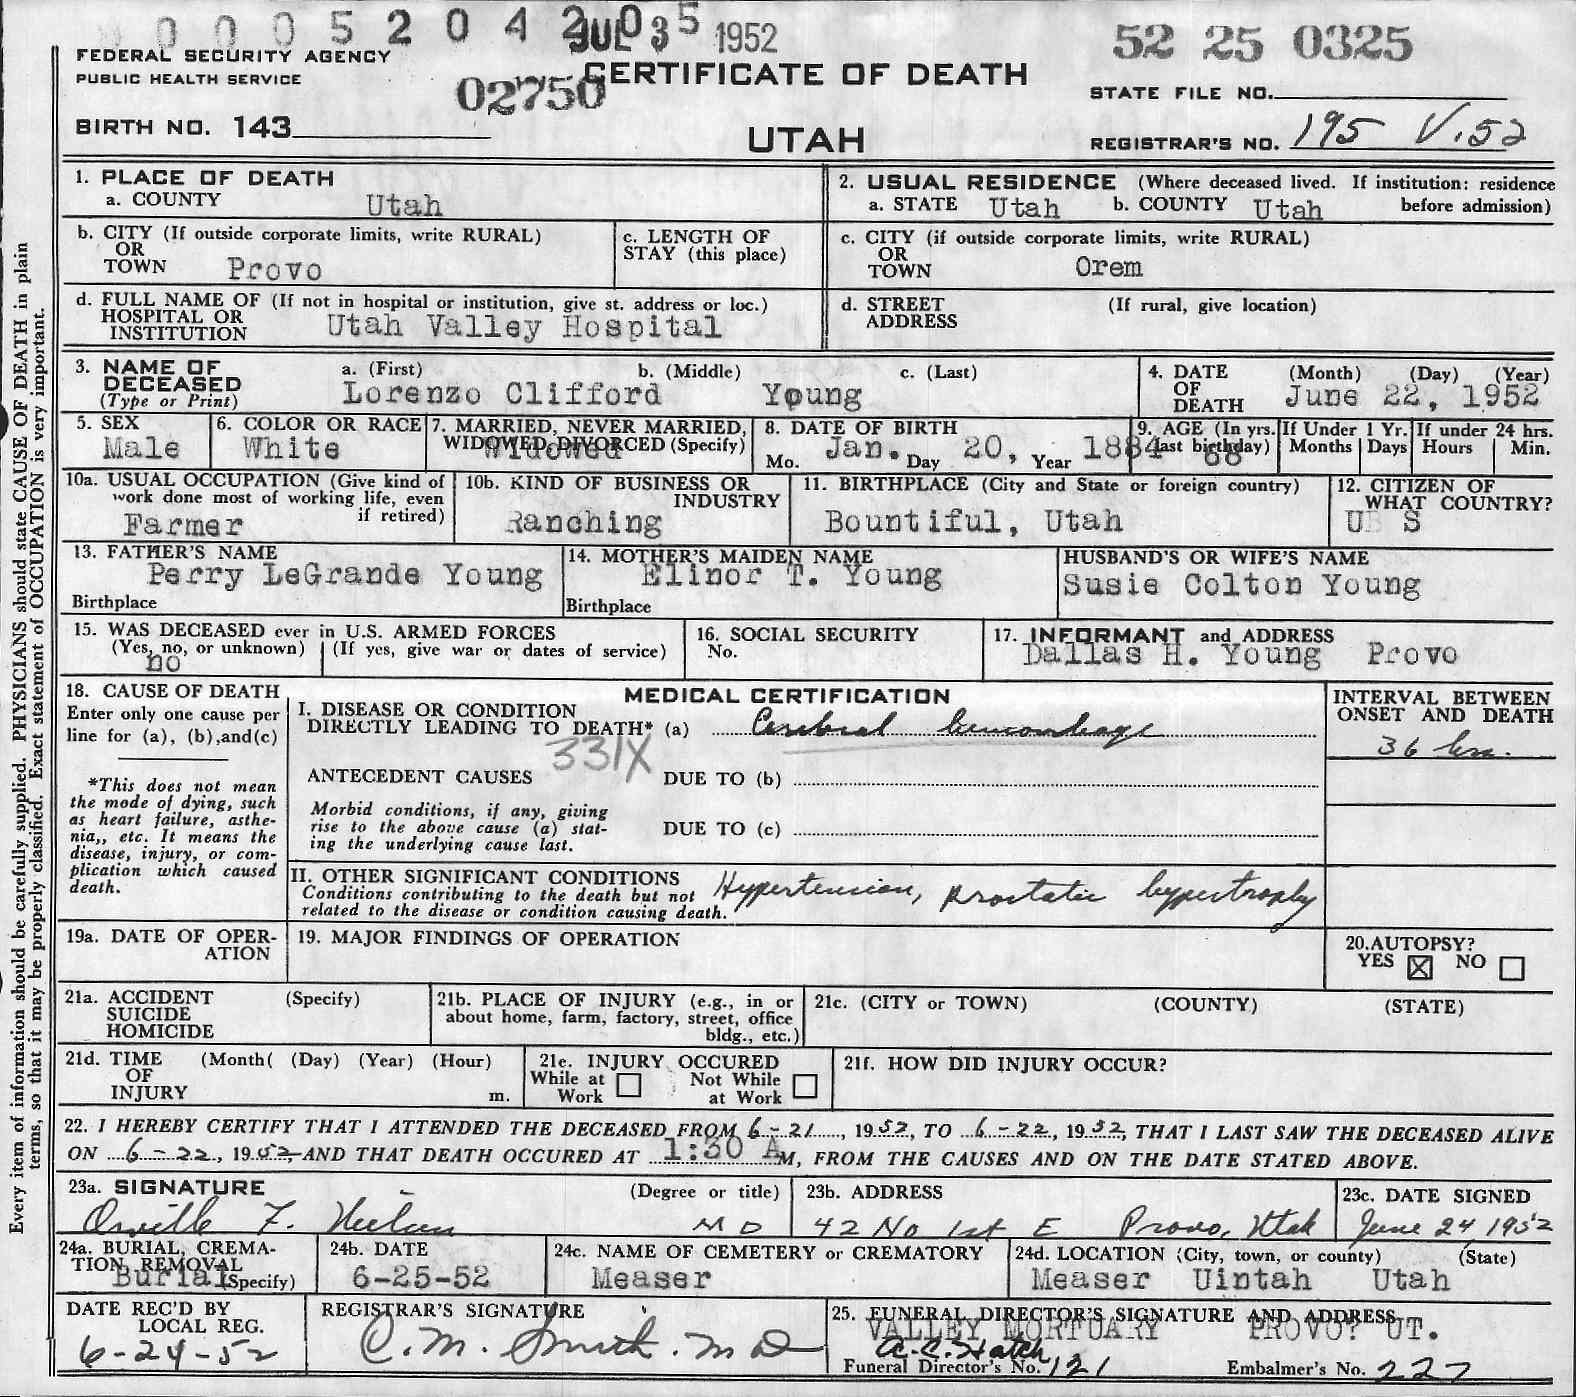 00052042 JUL 035 1952
52 25 0325
FEDERAL SECURITY AGENCY
PUBLIC HEALTH SERVICE
02750
CERTIFICATE OF DEATH
STATE FILE NO.
BIRTH NO. 143
UTAH
REGISTRAR'S NO. 195 V.52
1. PLACE OF DEATH
a. COUNTY Utah
2. USUAL RESIDENCE (Where deceased lived. If institution: residence
a. STATE Utah b. COUNTY Utah before admission)
b. CITY (If outside corporate limits, write RURAL)
OR
TOWN Provo
c. LENGTH OF
STAY (this place)
c. CITY (if outside corporate limits, write RURAL)
OR
TOWN Orem
d. FULL NAME OF (If not in hospital or institution, give st. address or loc.)
HOSPITAL OR
INSTITUTION Utah Valley Hospital
d. STREET (If rural, give location)
ADDRESS
3. NAME OF a. (First) b. (Middle) c. (Last)
DECEASED
(Type or Print) Lorenzo Clifford Young
4. DATE (Month) (Day) (Year)
OF
DEATH June 22, 1952
5. SEX
Male
6. COLOR OR RACE
White
7. MARRIED, NEVER MARRIED,
WIDOWED, DIVORCED (Specify)
Widowed
8. DATE OF BIRTH
Mo. Jan. Day 20, Year 1884
9. AGE (In yrs.
last birthday) 68
If Under 1 Yr.
Months Days
If under 24 hrs.
Hours Min.
10a. USUAL OCCUPATION (Give kind of
work done most of working life, even
if retired)
Farmer
10b. KIND OF BUSINESS OR
INDUSTRY
Ranching
11. BIRTHPLACE (City and State or foreign country)
Bountiful, Utah
12. CITIZEN OF
WHAT COUNTRY?
U S
13. FATHER'S NAME
Perry LeGrande Young
Birthplace
14. MOTHER'S MAIDEN NAME
Elinor T. Young
Birthplace
HUSBAND'S OR WIFE'S NAME
Susie Colton Young
15. WAS DECEASED ever in U.S. ARMED FORCES
(Yes, no, or unknown) (If yes, give war or dates of service)
no
16. SOCIAL SECURITY
No.
17. INFORMANT and ADDRESS
Dallas H. Young Provo
18. CAUSE OF DEATH
Enter only one cause per
line for (a), (b), and (c)
*This does not mean
the mode of dying, such
as heart failure, asthe-
nia,, etc. It means the
disease, injury, or com-
plication which caused
death.
MEDICAL CERTIFICATION
I. DISEASE OR CONDITION
DIRECTLY LEADING TO DEATH* (a) Cerebral hemorrhage
331X
ANTECEDENT CAUSES DUE TO (b)
Morbid conditions, if any, giving
rise to the above cause (a) stat-
ing the underlying cause last.
DUE TO (c)
II. OTHER SIGNIFICANT CONDITIONS
Conditions contributing to the death but not
related to the disease or condition causing death.
Hypertension, prostatic hypertrophy
INTERVAL BETWEEN
ONSET AND DEATH
36 hrs.
19a. DATE OF OPER-
ATION
19. MAJOR FINDINGS OF OPERATION
20. AUTOPSY?
YES ☒ NO ☐
21a. ACCIDENT (Specify)
SUICIDE
HOMICIDE
21b. PLACE OF INJURY (e.g., in or
about home, farm, factory, street, office
bldg., etc.)
21c. (CITY or TOWN) (COUNTY) (STATE)
21d. TIME (Month( (Day) (Year) (Hour)
OF
INJURY m.
21e. INJURY OCCURED
While at Work ☐ Not While at Work ☐
21f. HOW DID INJURY OCCUR?
22. I HEREBY CERTIFY THAT I ATTENDED THE DECEASED FROM 6-21, 1952, TO 6-22, 1952, THAT I LAST SAW THE DECEASED ALIVE
ON 6-22, 1952, AND THAT DEATH OCCURED AT 1:30 A M, FROM THE CAUSES AND ON THE DATE STATED ABOVE.
23a. SIGNATURE (Degree or title)
Orville F. Neilsen M D
23b. ADDRESS
42 No 1st E Provo, Utah
23c. DATE SIGNED
June 24, 1952
24a. BURIAL, CREMA-
TION, REMOVAL
(Specify) Burial
24b. DATE
6-25-52
24c. NAME OF CEMETERY or CREMATORY
Measer
24d. LOCATION (City, town, or county) (State)
Measer Uintah Utah
DATE REC'D BY
LOCAL REG.
6-24-52
REGISTRAR'S SIGNATURE
C. M. Smith. M D
25. FUNERAL DIRECTOR'S SIGNATURE AND ADDRESS
VALLEY MORTUARY PROVO? UT.
A. C. Hatch
Funeral Director's No. 121 Embalmer's No. 227
Every item of information should be carefully supplied. PHYSICIANS should state CAUSE OF DEATH in plain
terms, so that it may be properly classified. Exact statement of OCCUPATION is very important.